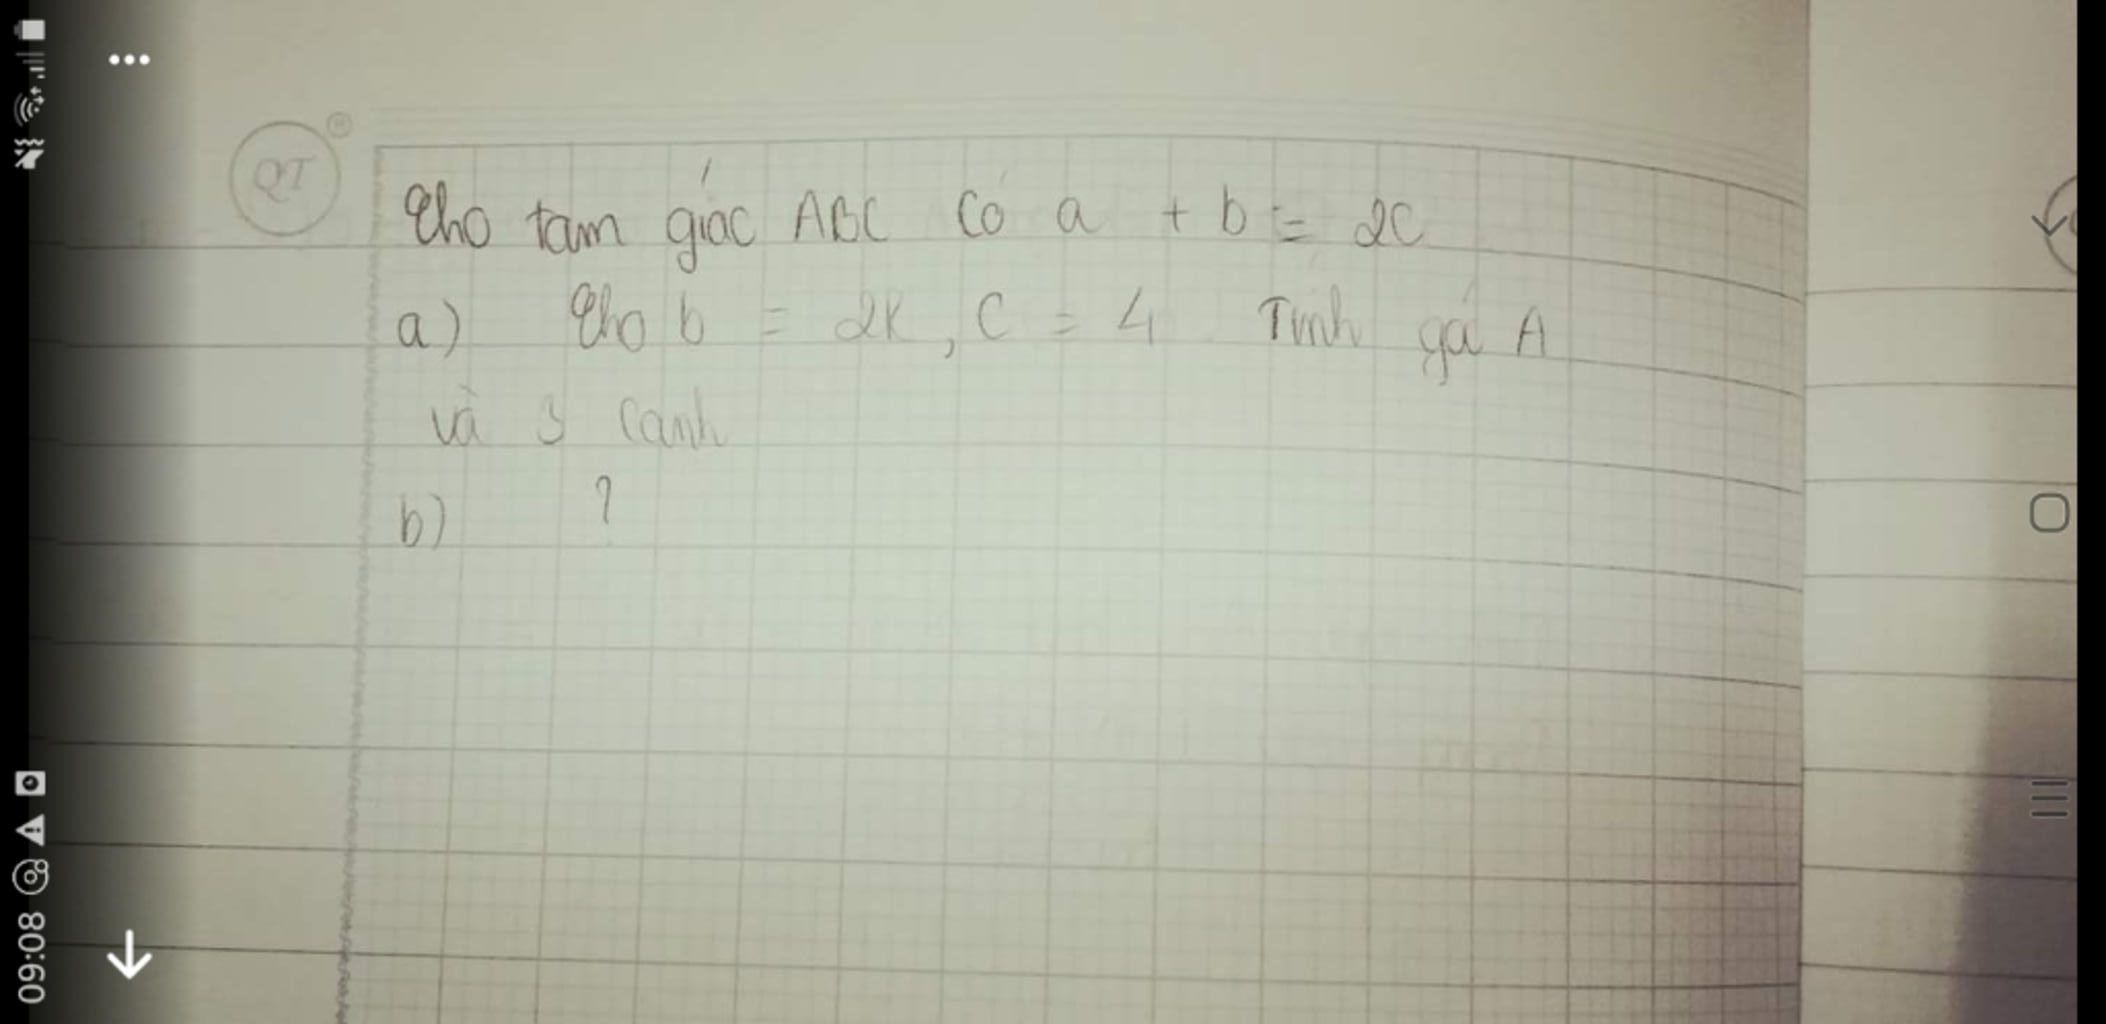 QT
Cho tam giác ABC có a + b = 2C
a) Cho b = 2K, C = 4 Tính gá A
và 3 cạnh
b) ?
09:08